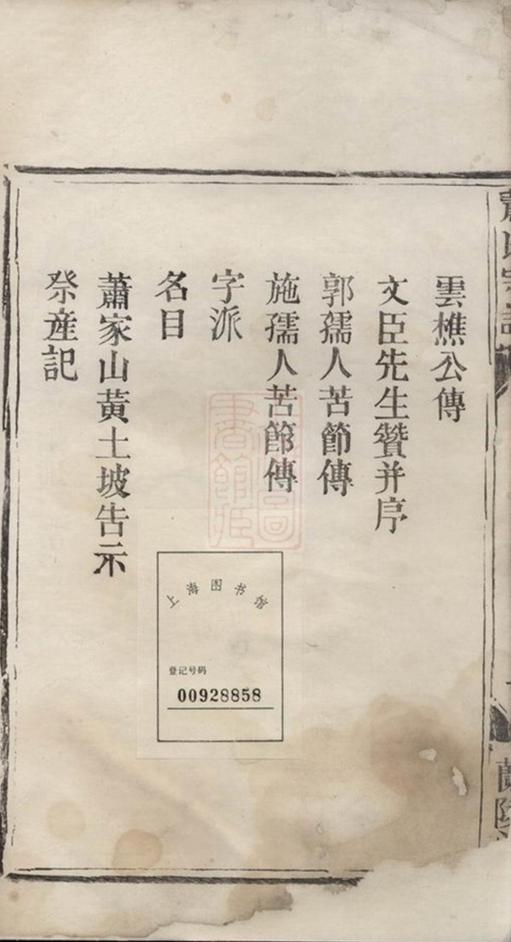 雲樵公傳
文臣先生贊并序
郭孺人苦節傳
施孺人苦節傳
字派
名目
蕭家山黃土坡告示
祭產記
上海图书馆
登记号码
00928858